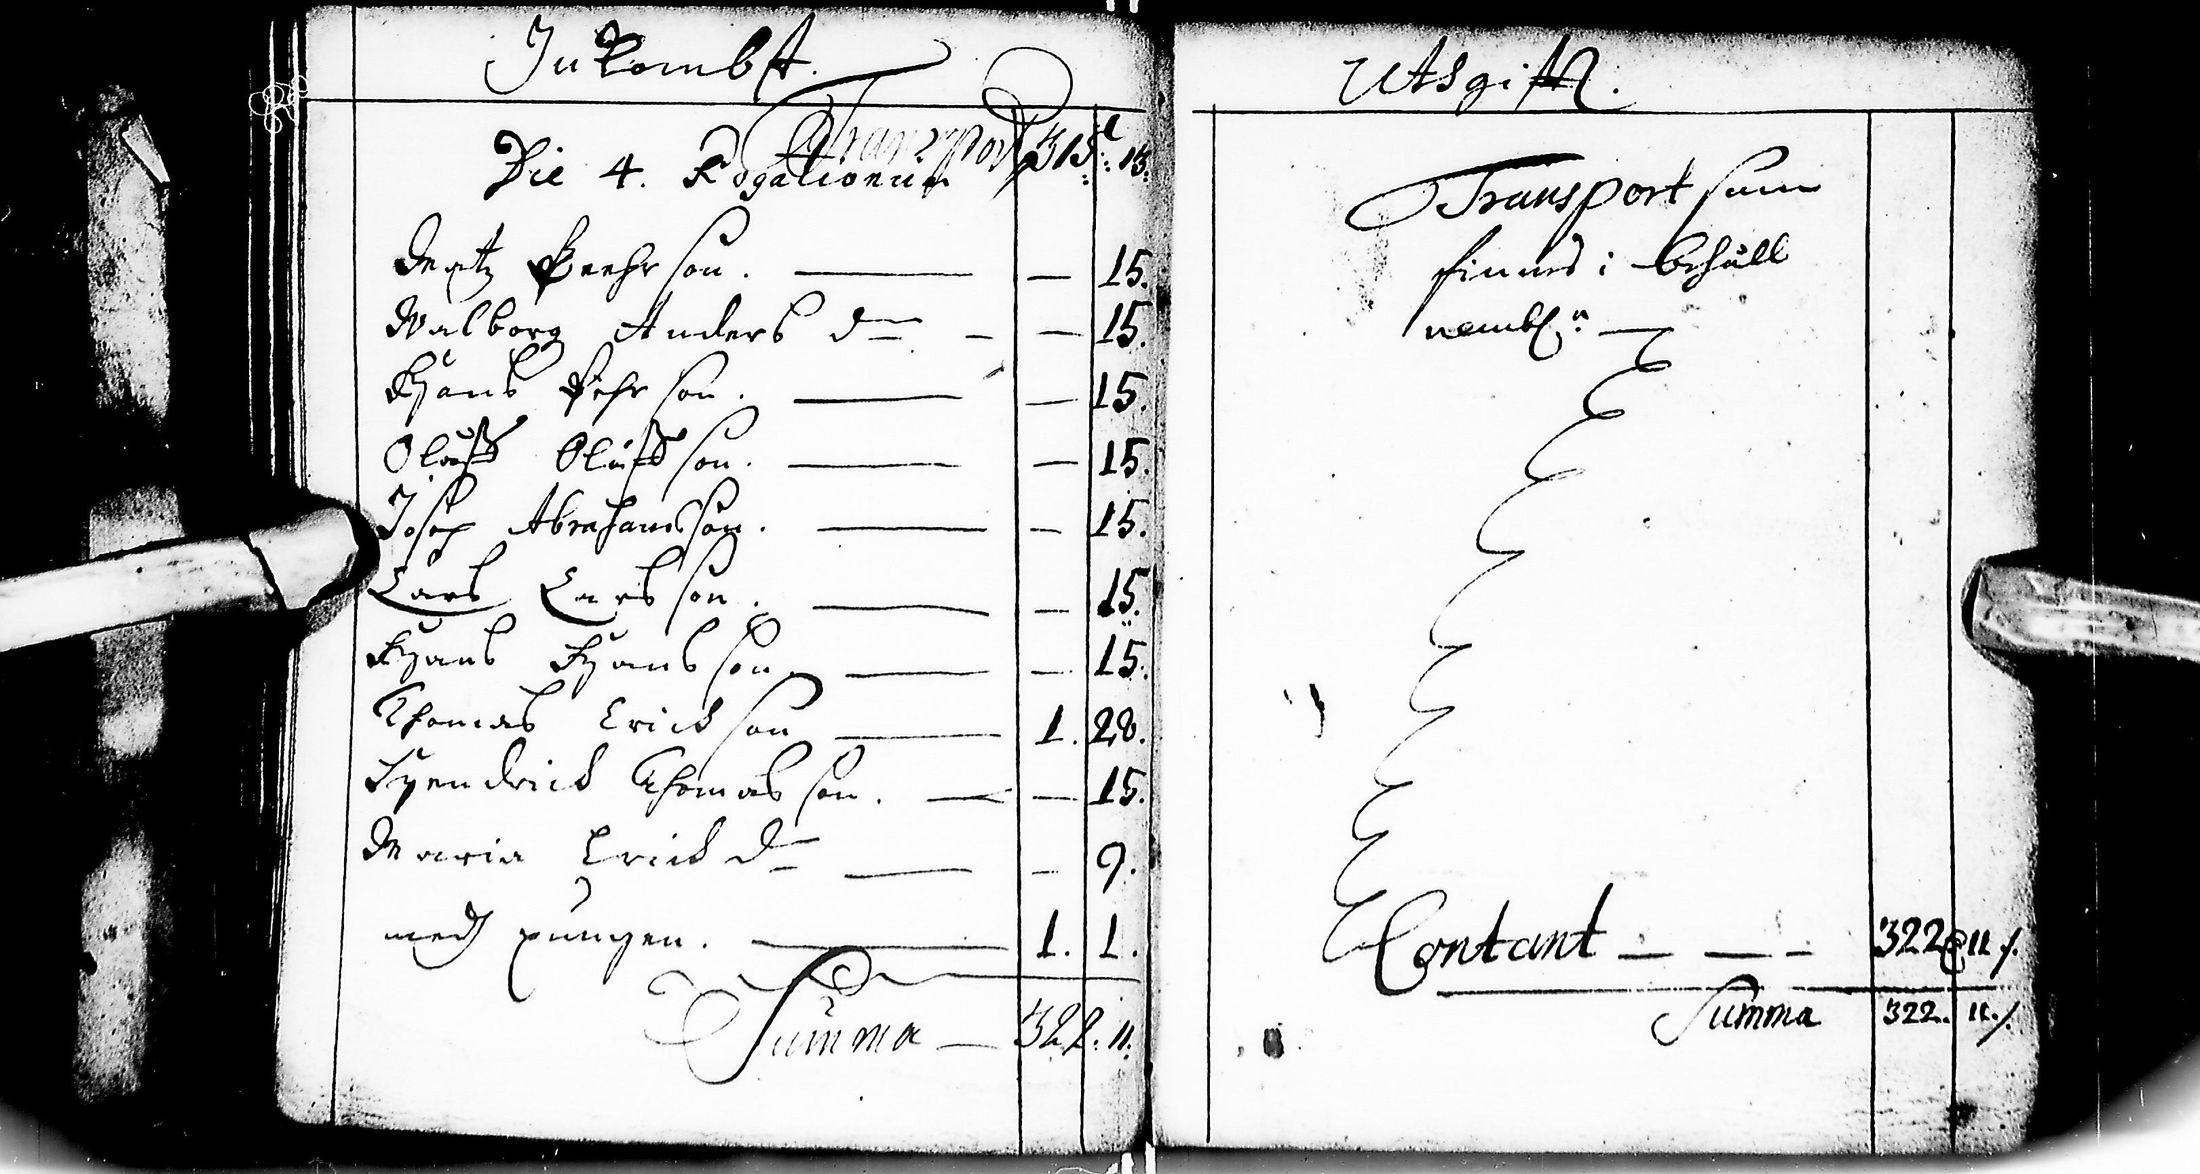 Inkombst.
Transport 315 : 13.
Die 4. Rogationum
Matz Peehrson. — — 15.
Walborg Anders d— — — 15.
Hans Pehrson. — — 15.
Olaff Olüffson. — — 15.
Josep Abrahamsson. — — 15.
Lars Larsson. — — 15.
Hans Hansson. — — 15.
Thomas Erickson — 1. 20.
Hendrick Thomasson. — — 15.
Maria Erick d— — — 9.
medh pungen. — 1. 1.
Summa — 322. 11.
Utsgifft.
Transport som
finnes i behåll
nembl:n —
Contant — — — 322 11 ⁒
Summa 322.. 11. ⁒